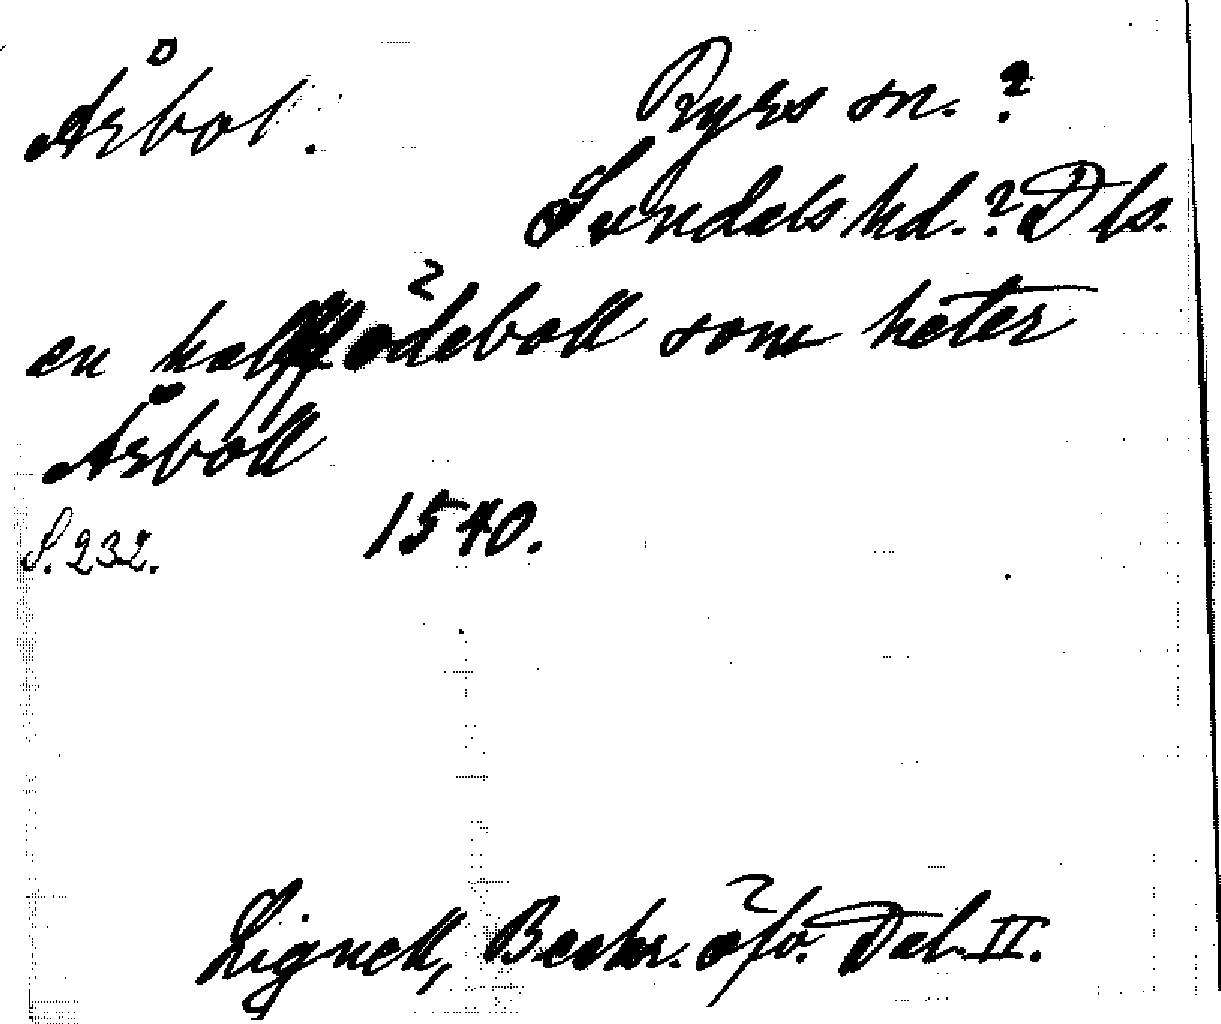 Årbol.
Ryrs sn. ?
Sundals hd.? Dls.
en half ödeboll som heter
Årboll
1540.
S. 232.
Lignell, Beskr. öfv. Dal II.